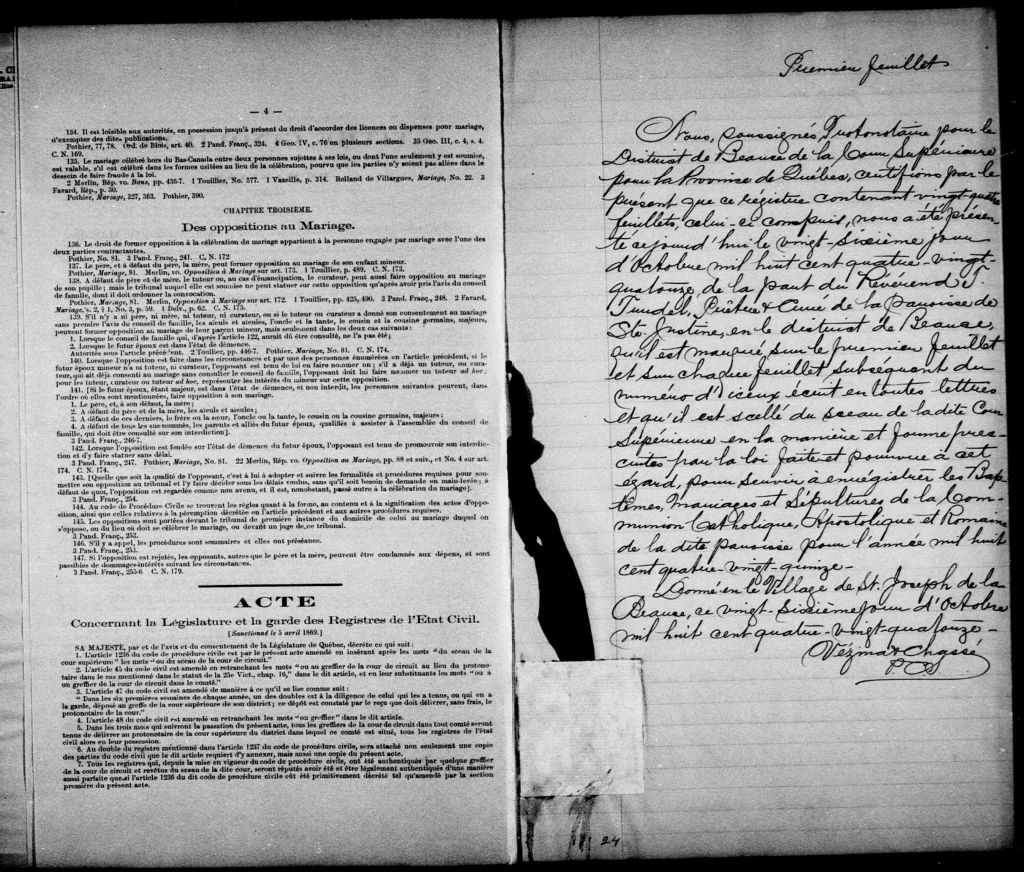 — 4 —
134. Il est loisible aux autorités, en possession jusqu'à présent du droit d'accorder des licences ou dispenses pour mariage,
d'exempter des dites publications.
Pothier, 77, 78. Ord. de Blois, art. 40. 2 Pand. Franç., 324. 4 Geo. IV, c. 76 en plusieurs sections. 25 Geo. III, c. 4, s. 4.
C. N. 169.
135. Le mariage célébré hors du Bas-Canada entre deux personnes sujettes à ses lois, ou dont l'une seulement y est soumise,
est valable, s'il est célébré dans les formes usitées au lieu de la célébration, pourvu que les parties n'y soient pas allées dans le
dessein de faire fraude à la loi.
2 Merlin, Rép. vo. Bans, pp. 436-7. 1 Touillier, No. 577. 1 Vazeille, p. 314. Rolland de Villargues, Mariage, No. 22. 3
Favard, Rép., p. 30.
Pothier, Mariage, 327, 363. Pothier, 390.
CHAPITRE TROISIEME.
Des oppositions au Mariage.
136. Le droit de former opposition à la célébration du mariage appartient à la personne engagée par mariage avec l'une des
deux parties contractantes.
Pothier, No. 81. 3 Pand. Franç., 241. C. N. 172.
137. Le père, et à défaut du père, la mère, peut former opposition au mariage de son enfant mineur.
Pothier, Mariage, 81. Merlin, vo. Opposition à Mariage sur art. 173. 1 Touillier, p. 489. C. N. 173.
138. A défaut de père et de mère, le tuteur ou, au cas d'émancipation, le curateur, peut aussi faire opposition au mariage
de son pupille; mais le tribunal auquel elle est soumise ne peut statuer sur cette opposition qu'après avoir pris l'avis du conseil
de famille, dont il doit ordonner la convocation.
Pothier, Mariage, 81. Merlin, Opposition à Mariage sur art. 172. 1 Touillier, pp. 425, 490. 3 Pand. Franç., 248. 2 Favard,
Mariage, s. 2, § 1, No. 3, p. 59. 1 Delv., p. 62. C. N. 175.
139. S'il n'y a ni père, ni mère, ni tuteur, ni curateur, ou si le tuteur ou curateur a donné son consentement au mariage
sans prendre l'avis du conseil de famille, les aïeuls et aïeules, l'oncle et la tante, le cousin et la cousine germains, majeurs,
peuvent former opposition au mariage de leur parent mineur, mais seulement dans les deux cas suivants:
1. Lorsque le conseil de famille qui, d'après l'article 122, aurait dû être consulté, ne l'a pas été;
2. Lorsque le futur époux est dans l'état de démence.
Autorités sous l'article précédent. 2 Toullier, pp. 446-7. Pothier, Mariage, No. 81. C. N. 174.
140. Lorsque l'opposition est faite dans les circonstances et par une des personnes énumérées en l'article précédent, si le
futur époux mineur n'a ni tuteur, ni curateur, l'opposant est tenu de lui en faire nommer un; s'il a déjà un tuteur, ou curateur,
qui ait déjà consenti au mariage sans consulter le conseil de famille, l'opposant doit lui faire nommer un tuteur ad hoc;
pour les tuteur, curateur ou tuteur ad hoc, représenter les intérêts du mineur sur cette opposition.
141. [Si le futur époux, étant majeur, est dans l'état de démence, et non interdit, les personnes suivantes peuvent, dans
l'ordre où elles sont mentionnées, faire opposition à son mariage.
1. Le père, et, à son défaut, la mère;
2. A défaut du père et de la mère, les aïeuls et aïeules;
3. A défaut de ces derniers, le frère ou la sœur, l'oncle ou la tante, le cousin ou la cousine germains, majeurs;
4. A défaut de tous les sus-nommés, les parents et alliés du futur époux, qualifiés à assister à l'assemblée du conseil de
famille, qui doit être consulté sur son interdiction].
3 Pand. Franç., 246-7.
142. Lorsque l'opposition est fondée sur l'état de démence du futur époux, l'opposant est tenu de promouvoir son interdiction
et d'y faire statuer sans délai.
3 Pand. Franç., 247. Pothier, Mariage, No. 81. 22 Merlin, Rép. vo. Opposition au Mariage, pp. 88 et suiv., et No. 4 sur art.
174. C. N. 174.
143. [Quelle que soit la qualité de l'opposant, c'est à lui à adopter et suivre les formalités et procédures requises pour soumettre
son opposition au tribunal et l'y faire décider sous les délais voulus, sans qu'il soit besoin de demande en main-levée; à
défaut de quoi, l'opposition est regardée comme non avenu, et il est, nonobstant, passé outre à la célébration du mariage].
3 Pand. Franç., 254.
144. Au code de Procédure Civile se trouvent les règles quant à la forme, au contenu et à la signification des actes d'opposition,
ainsi que celles relatives à la péremption décrétée en l'article précédent et aux autres procédures requises.
145. Les oppositions sont portées devant le tribunal de première instance du domicile de celui au mariage duquel on
s'oppose, ou du lieu où doit se célébrer le mariage, ou devant un juge de ce tribunal.
3 Pand. Franç., 253.
146. S'il y a appel, les procédures sont sommaires et elles ont préséance.
3 Pand. Franç., 253.
147. Si l'opposition est rejetée, les opposants, autres que le père et la mère, peuvent être condamnés aux dépens, et sont
passibles de dommages-intérêts suivant les circonstances.
3 Pand. Franç., 255-6. C. N. 179.
ACTE
Concernant la Législature et la garde des Registres de l'Etat Civil.
[Sanctionné le 5 avril 1869.]
SA MAJESTÉ, par et de l'avis et du consentement de la Législature de Québec, décrète ce qui suit:
1. L'article 1236 du code de procédure civile est par le présent acte amendé en insérant après les mots "du sceau de la
cour supérieure" les mots "ou du sceau de la cour de circuit."
2. L'article 45 du code civil est amendé en retranchant les mots "ou au greffier de la cour de circuit au lieu du protonotaire
dans le cas mentionné dans le statut de la 25e Vict., chap. 16," dans le dit article, et en leur substituants les mots "ou à
un greffier de la cour de circuit dans le comté."
3. L'article 47 du code civil est amendé de manière à ce qu'il se lise comme suit:
"Dans les six premières semaines de chaque année, un des doubles est à la diligence de celui qui les a tenus, ou qui en a
la garde, déposé au greffe de la cour supérieure de son district; ce dépôt est constaté par le reçu que doit délivrer, sans frais, le
protonotaire de la cour."
4. L'article 48 du code civil est amendé en retranchant les mots "ou greffier" dans le dit article.
5. Dans les trois mois qui suivront la passation du présent acte, tous les greffiers de la cour de circuit dans tout comté seront
tenus de délivrer au protonotaire de la cour supérieure du district dans lequel ce comté est situé, tous les registres de l'état
civil alors en leur possession.
6. Au double du registre mentionné dans l'article 1237 du code de procédure civile, sera attaché non seulement une copie
des parties du code civil que le dit article requiert d'y annexer, mais aussi une copie du présent acte.
7. Tous les registres qui, depuis la mise en vigueur du code de procédure civile, ont été authentiqués par quelque greffier
de la cour de circuit et revêtus du sceau de la dite cour, seront réputés avoir été et être légalement authentiqués d'une manière
aussi parfaite que si l'article 1236 du dit code de procédure civile eût été primitivement décrété tel qu'amendé par la section
première du présent acte.
Premier feuillet
Nous, soussignés, Protonotaire pour le
District de Beauce de la Cour Supérieure
pour la Province de Québec, certifions par le
présent que ce régistre contenant vingt-quatre
feuillets, celui-ci compris, nous a été présen-
té ce jourd'hui le vingt-sixième jour
d'Octobre mil huit cent quatre-vingt-
quatorze, de la part du Révérend J.
Trudel, Prêtre & Curé de la paroisse de
Ste. Justine, en le district de Beauce,
qu'il est marqué sur le premier feuillet
et sur chaque feuillet subséquent du
numéro d'iceux écrit en toutes lettres
et qu'il est scellé du sceau de la dite Cour
Supérieure en la manière et forme pres-
crites par la loi faite et pourvue à cet
égard, pour servir à enrégistrer les Bap-
têmes, Mariages et Sépultures de la Com-
munion Catholique, Apostolique et Romaine
de la dite paroisse pour l'année mil huit
cent quatre-vingt-quinze.-
Donné en le Village de St. Joseph de la
Beauce, ce vingt-sixième jour d'Octobre
mil huit cent quatre-vingt-quatorze.-
Vézina & Chassé
P. C. S.
24